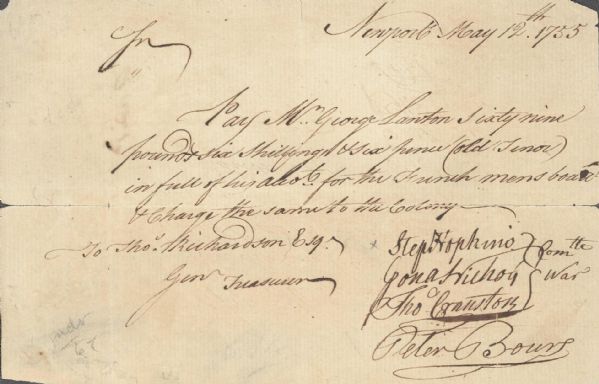 Newport May 12th. 1755
Sr
Pay Mr George Lanton sixty nine
pounds six Shillings & six pence (old Tenor)
in full of his accot. for the French mens board
& Charge the same to the Colony
To Thos. Richardson Esqr
Genl Treasurer
Step Hopkins
Jona Nichols
Thos Cranston
Comtte
War
Peter Bours